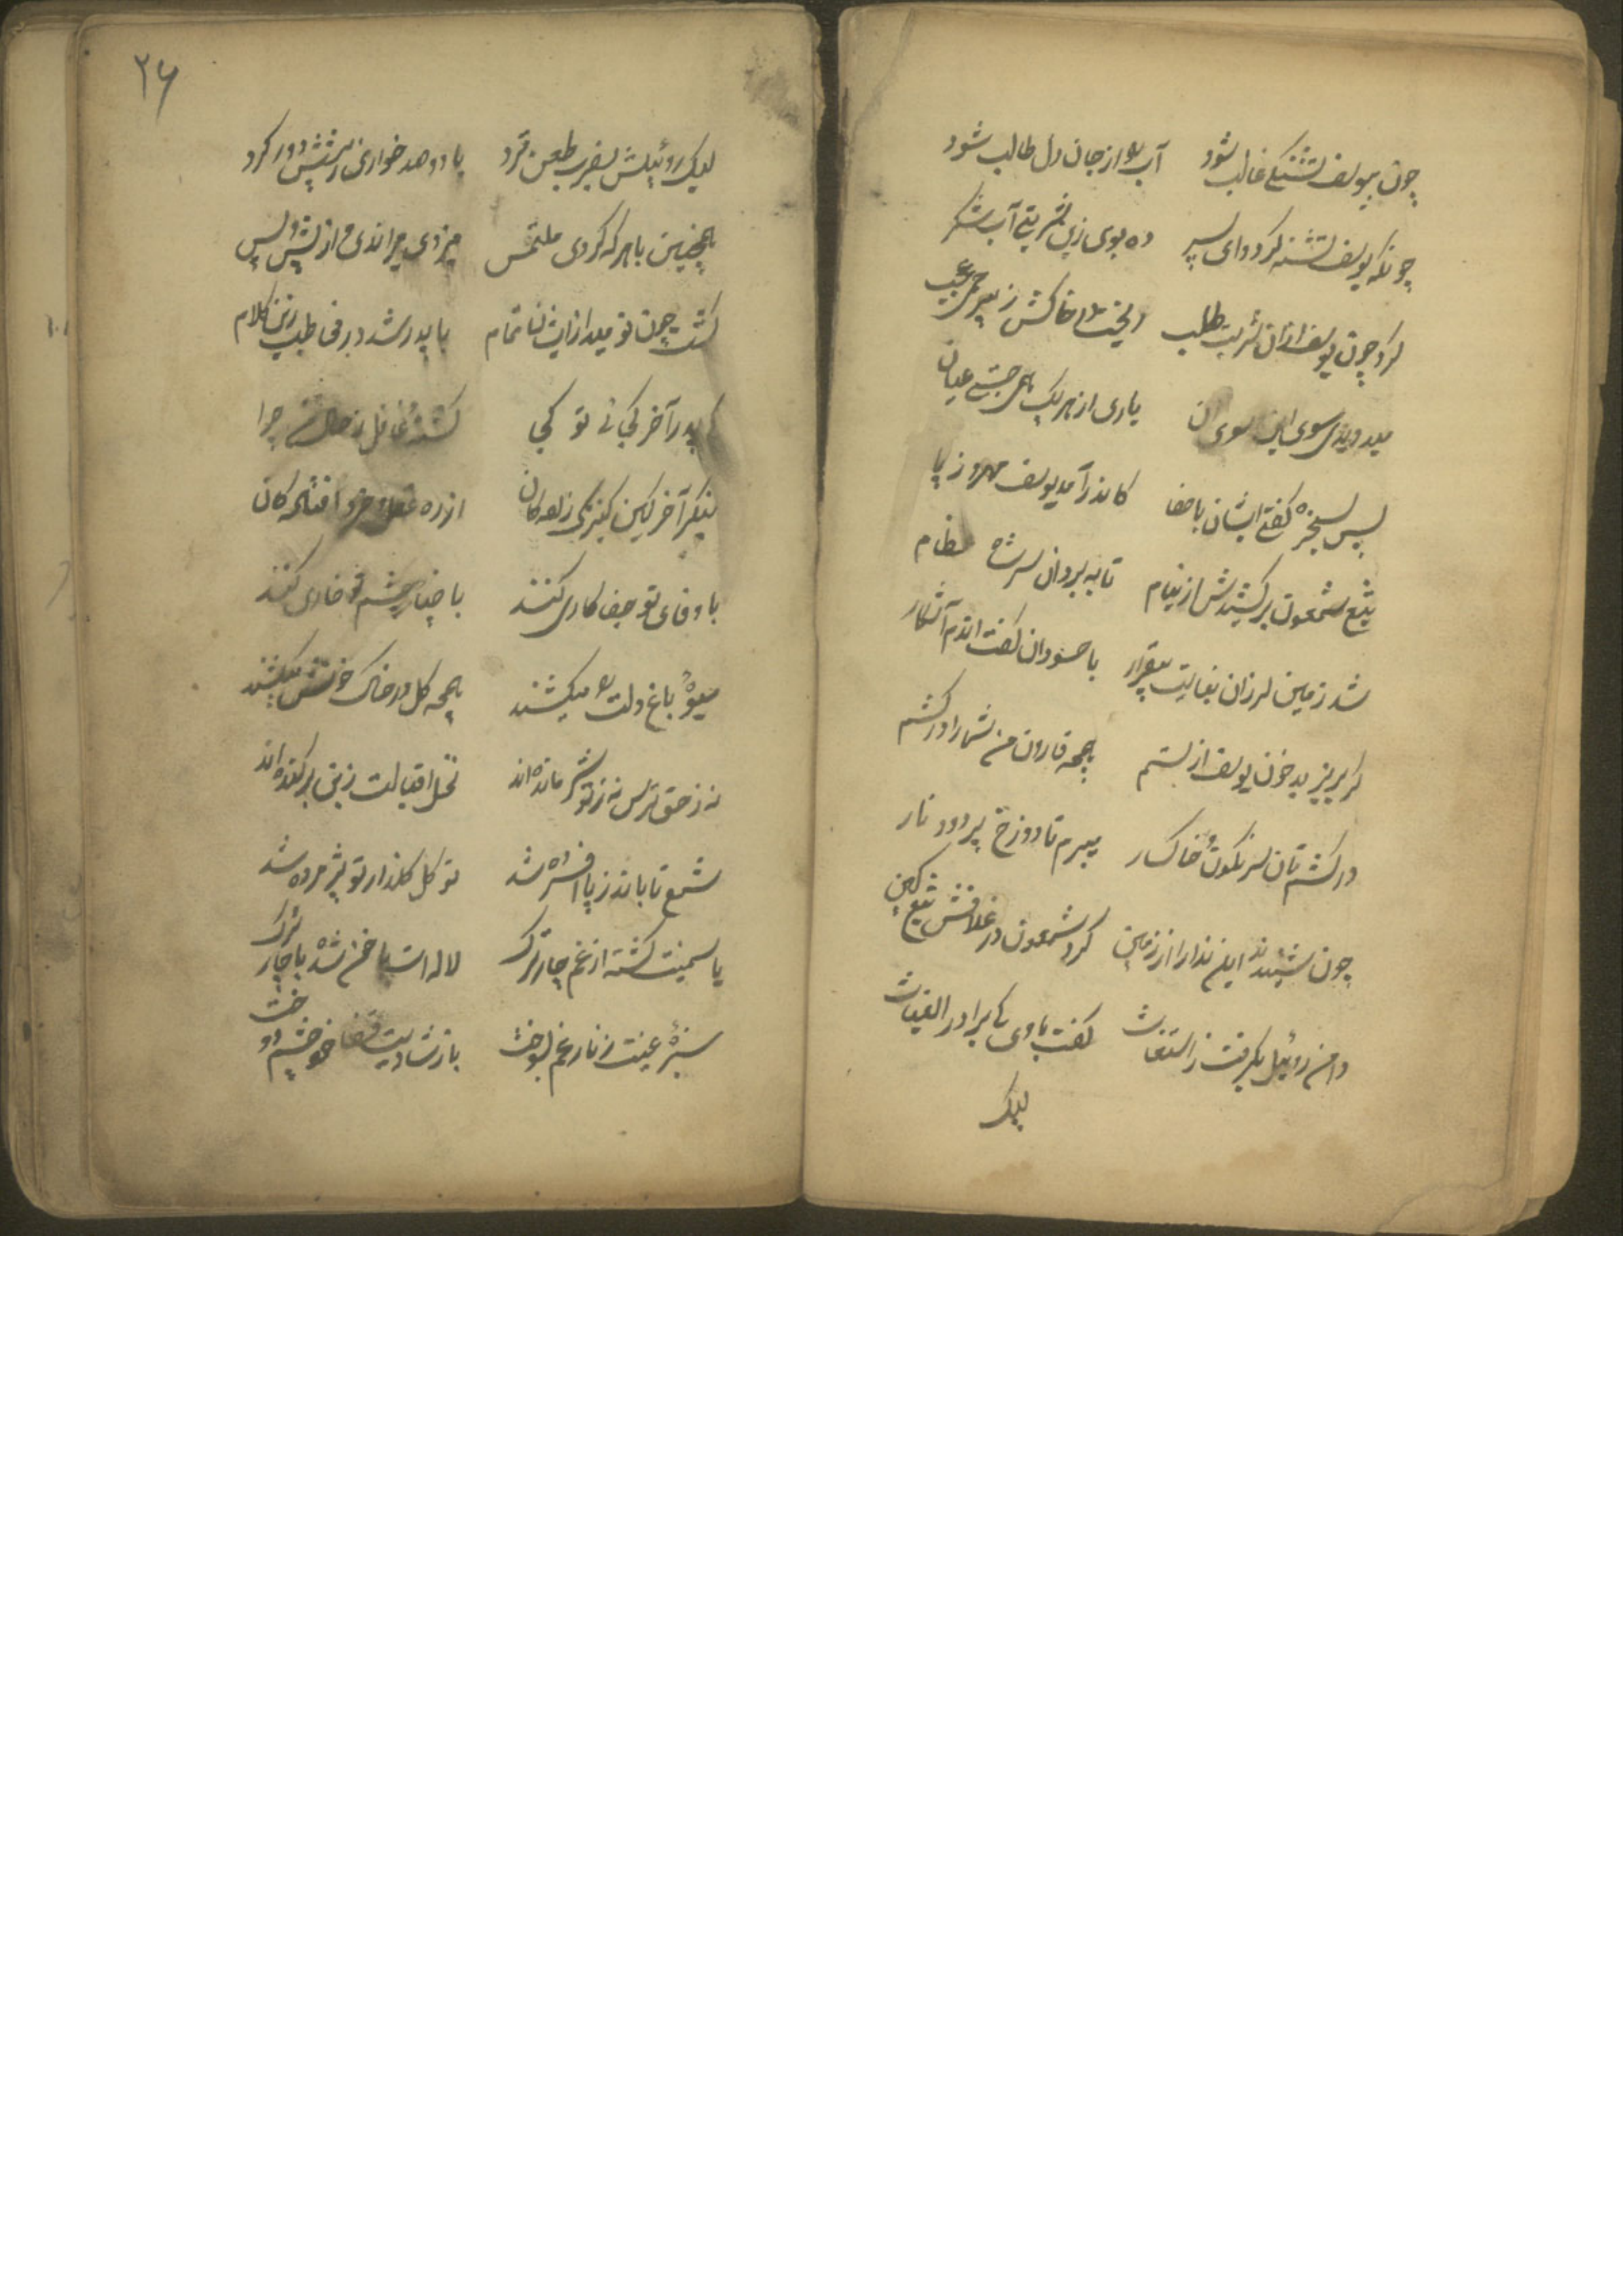 چون بیوسف تشنگی غالب شود آب را از جان و دل طالب شود
چونکه یوسف تشنه گردد ای پسر ده بوی زین شربتی آب شکر
کرد چون یوسف ازان شربت طلب ریخت در خاکش ز بیرحمی عجب
میدویدی سوی این و سوی آن یاری از هر یک همی جستی عیان
پس بسخره گفتی ایشان با صفا کاندر آمد یوسف مهرو ز پا
تیغ شمعون برکشیدش از نیام تا ببرد آن سر
شد زمین لرزان بغایت بیقرار با حسودان گفت اندم آشکار
گر بریزید خون یوسف از ستم همچه قارون من شما را درکشم
درکشم تان سرنکون و خاکسار میبرم تا دوزخ پر دود و نار
چون شنیدند این ندا را از زمین کرد شمعون در غلافش تیغ کین
دامن روئیل بگرفت ز استغاث گفت با وی کای برادر الغیاث
لیک
۲۶
لیک روئیلش بضرب طعن فرد با دو صد خواری ز پیشش دور کرد
همچنین با هر که کردی ملتمس میزدی میراندی از پیش و پس
گشت چون نومید از ایشان تمام با پدر شد در مخاطب زین کلام
کای پدر آخر کجائی تو کجا گشته غافل ز حال من چرا
بنگر آخر کین کنیزک زادگان از ره عقل و خرد افتادگان
با وفای تو جفا کاری کنند با چنار چشم تو خاری کنند
میوه باغ دلت را میکشند همچه گل در خاک و خونش میکشند
نه ز حق ترس نه ز تو شرمانده‌اند نخل اقبالت ز بن برکنده‌اند
شمع تابانت ز پا افسرده شد نو گل گلذار تو پژمرده شد
یاسمینت گشته از غم چار ترک لاله است با خون شده با چار ترک
سبزه عیشت ز نار غم بسوخت باز شادیت قضا خو چشم دوخت